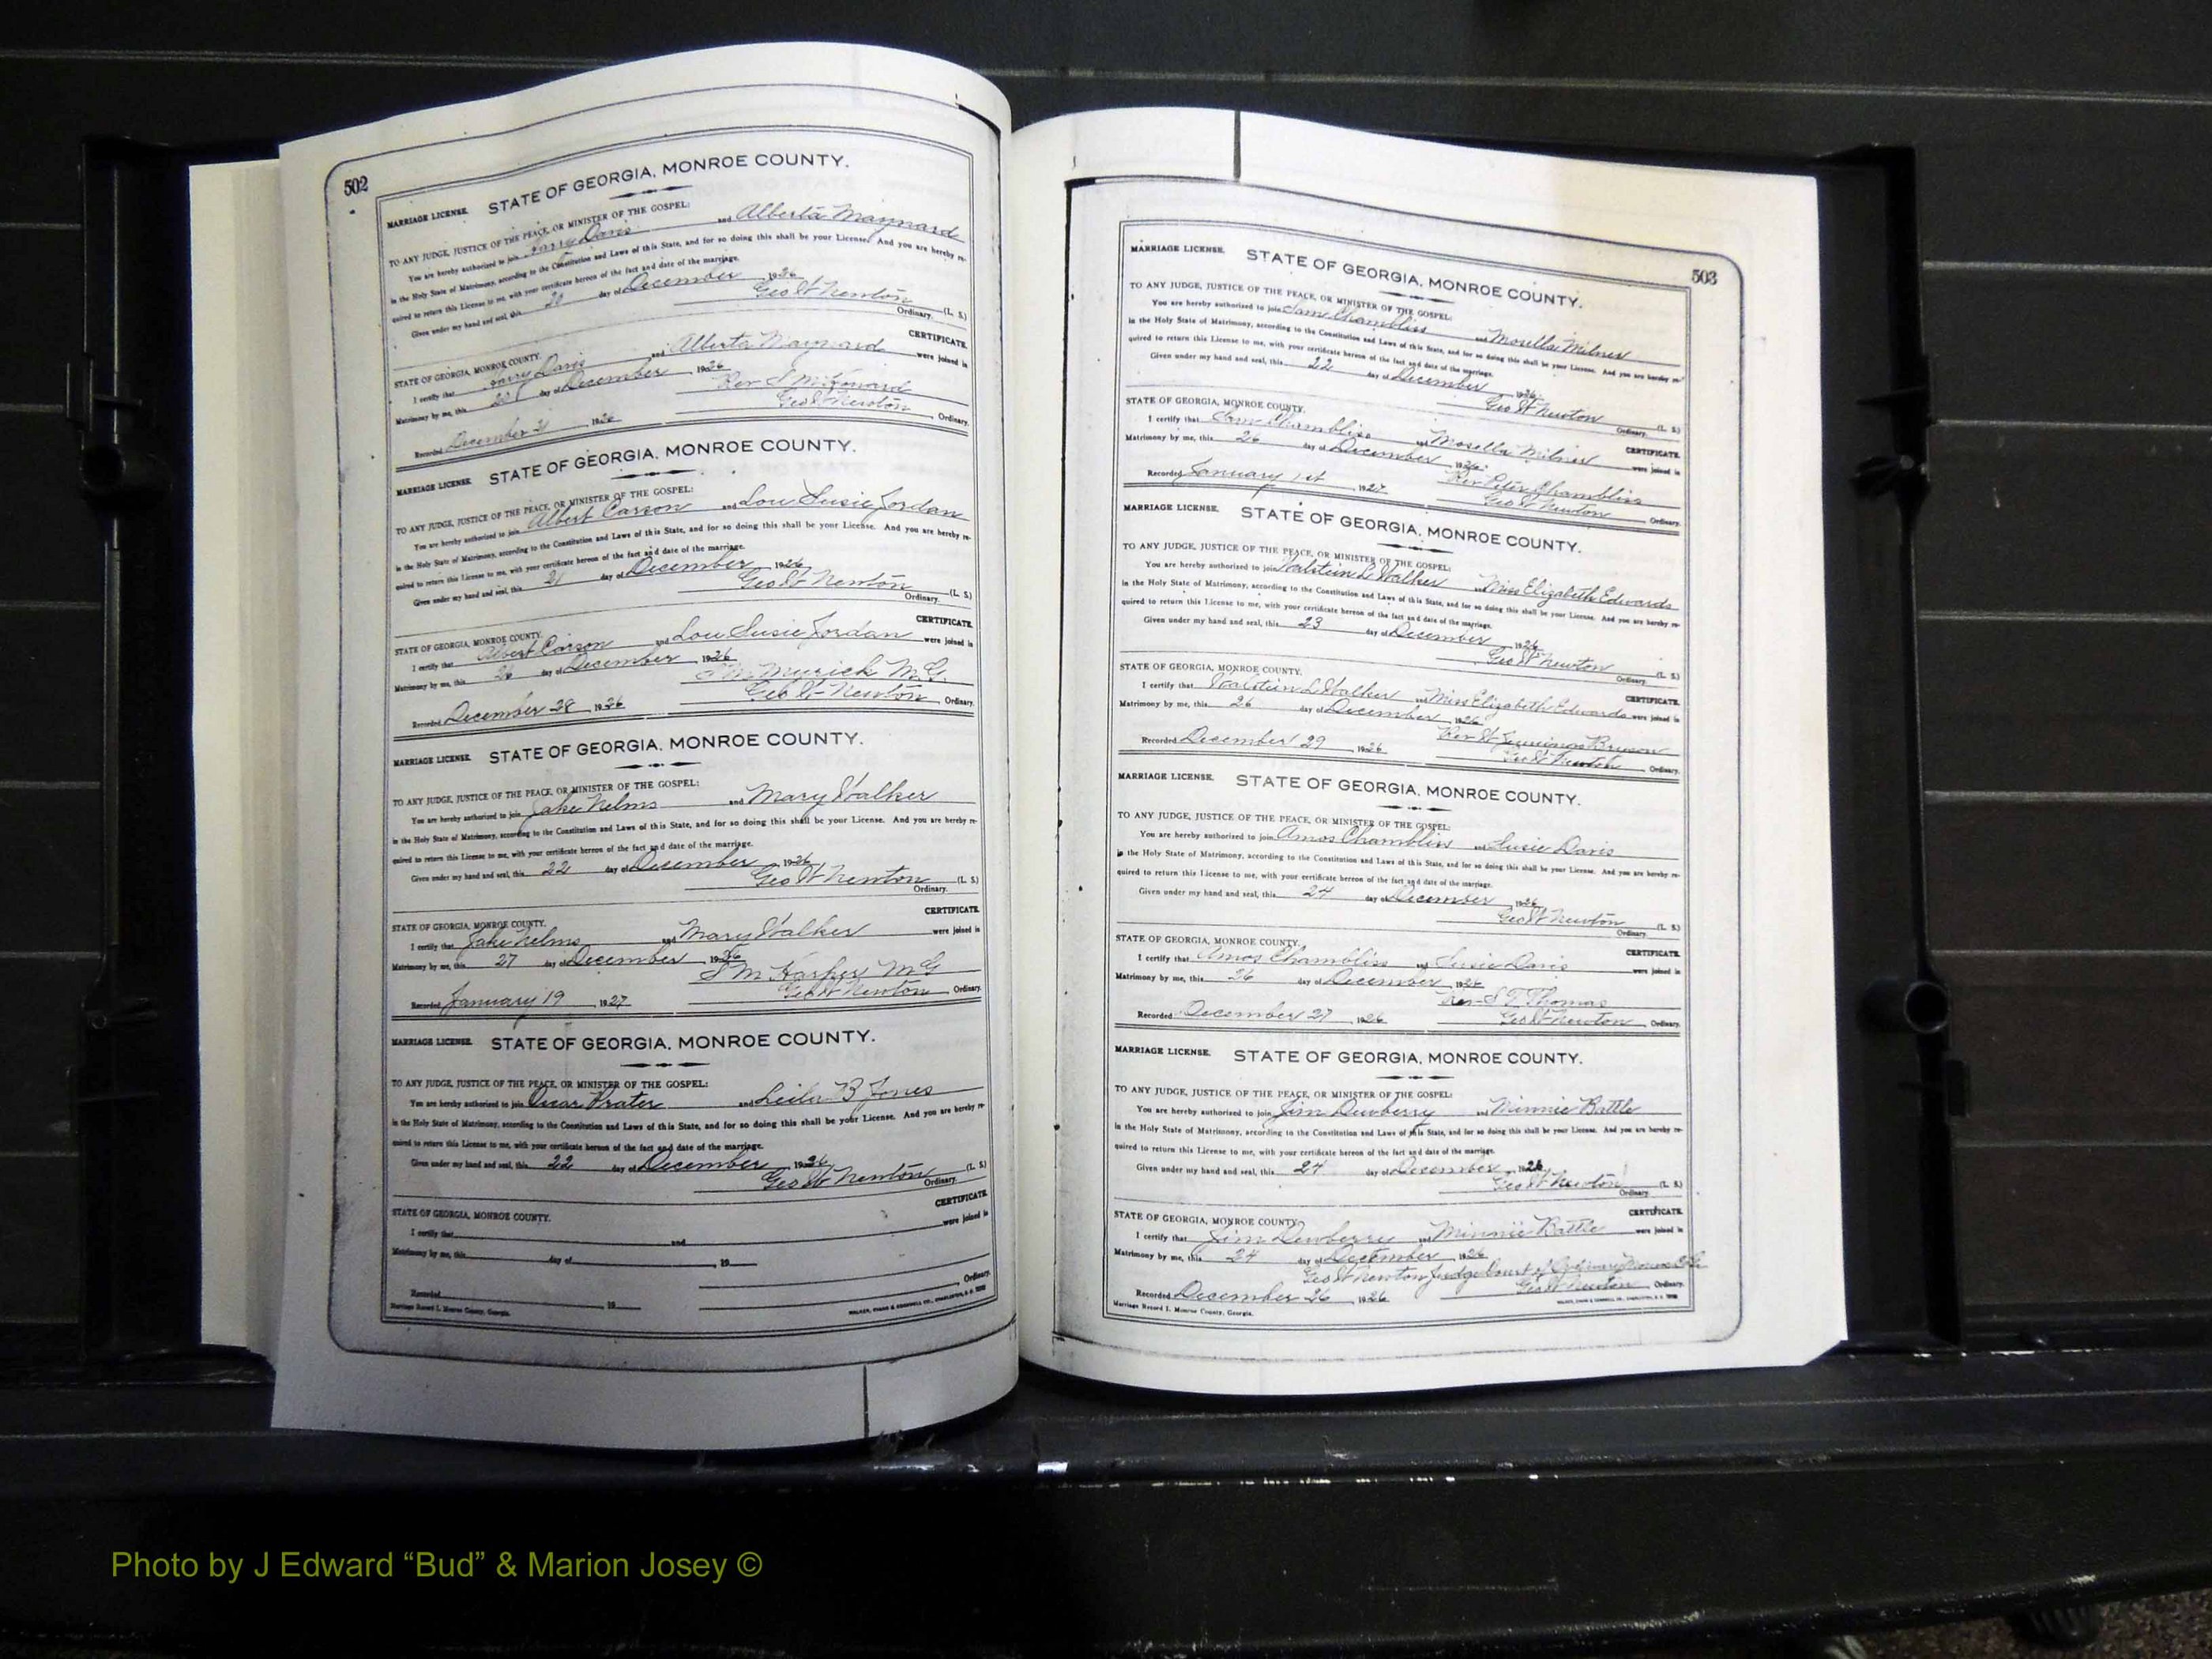 502
MARRIAGE LICENSE. STATE OF GEORGIA, MONROE COUNTY.
TO ANY JUDGE, JUSTICE OF THE PEACE, OR MINISTER OF THE GOSPEL:
You are hereby authorized to join Harry Davis and Alberta Maynard
in the Holy State of Matrimony, according to the Constitution and Laws of this State, and for so doing this shall be your License. And you are hereby re-
quired to return this License to me, with your certificate hereon of the fact and date of the marriage.
Given under my hand and seal, this 20 day of December 1926
Geo W Newton (L. S.)
Ordinary.
CERTIFICATE.
STATE OF GEORGIA, MONROE COUNTY.
I certify that Harry Davis and Alberta Maynard were joined in
Matrimony by me, this 20 day of December, 1926
Rev S M Howard
Recorded December 21 1926 Geo W Newton, Ordinary.
MARRIAGE LICENSE. STATE OF GEORGIA, MONROE COUNTY.
TO ANY JUDGE, JUSTICE OF THE PEACE, OR MINISTER OF THE GOSPEL:
You are hereby authorized to join Albert Carson and Lou Susie Jordan
in the Holy State of Matrimony, according to the Constitution and Laws of this State, and for so doing this shall be your License. And you are hereby re-
quired to return this License to me, with your certificate hereon of the fact and date of the marriage.
Given under my hand and seal, this 21 day of December 1926
Geo W Newton (L. S.)
Ordinary.
CERTIFICATE.
STATE OF GEORGIA, MONROE COUNTY.
I certify that Albert Carson and Lou Susie Jordan were joined in
Matrimony by me, this 26 day of December, 1926
Myrick M.G.
Recorded December 28, 1926 Geo W Newton, Ordinary.
MARRIAGE LICENSE. STATE OF GEORGIA, MONROE COUNTY.
TO ANY JUDGE, JUSTICE OF THE PEACE, OR MINISTER OF THE GOSPEL:
You are hereby authorized to join Jake Nelms and Mary Walker
in the Holy State of Matrimony, according to the Constitution and Laws of this State, and for so doing this shall be your License. And you are hereby re-
quired to return this License to me, with your certificate hereon of the fact and date of the marriage.
Given under my hand and seal, this 22 day of December, 1926
Geo W Newton (L. S.)
Ordinary.
CERTIFICATE.
STATE OF GEORGIA, MONROE COUNTY.
I certify that Jake Nelms and Mary Walker were joined in
Matrimony by me, this 27 day of December, 1926
S M Harper M G
Recorded January 19, 1927 Geo W Newton, Ordinary.
MARRIAGE LICENSE. STATE OF GEORGIA, MONROE COUNTY.
TO ANY JUDGE, JUSTICE OF THE PEACE, OR MINISTER OF THE GOSPEL:
You are hereby authorized to join Oscar Prater and Leila B Jones
in the Holy State of Matrimony, according to the Constitution and Laws of this State, and for so doing this shall be your License. And you are hereby re-
quired to return this License to me, with your certificate hereon of the fact and date of the marriage.
Given under my hand and seal, this 22 day of December, 1926
Geo W Newton (L. S.)
Ordinary.
CERTIFICATE.
STATE OF GEORGIA, MONROE COUNTY.
I certify that and were joined in
Matrimony by me, this day of, 19
Recorded, 19, Ordinary.
Marriage Record I. Monroe County, Georgia.
503
MARRIAGE LICENSE. STATE OF GEORGIA, MONROE COUNTY.
TO ANY JUDGE, JUSTICE OF THE PEACE, OR MINISTER OF THE GOSPEL:
You are hereby authorized to join Sam Chambliss and Mosella Milner
in the Holy State of Matrimony, according to the Constitution and Laws of this State, and for so doing this shall be your License. And you are hereby re-
quired to return this License to me, with your certificate hereon of the fact and date of the marriage.
Given under my hand and seal, this 22 day of December 1926
Geo W Newton (L. S.)
Ordinary.
CERTIFICATE.
STATE OF GEORGIA, MONROE COUNTY.
I certify that Sam Chambliss and Mosella Milner were joined in
Matrimony by me, this 26 day of December, 1926
Rev Peter Chambliss
Recorded January 1st, 1927 Geo W Newton, Ordinary.
MARRIAGE LICENSE. STATE OF GEORGIA, MONROE COUNTY.
TO ANY JUDGE, JUSTICE OF THE PEACE, OR MINISTER OF THE GOSPEL:
You are hereby authorized to join Walstein L Walker and Miss Elizabeth Edwards
in the Holy State of Matrimony, according to the Constitution and Laws of this State, and for so doing this shall be your License. And you are hereby re-
quired to return this License to me, with your certificate hereon of the fact and date of the marriage.
Given under my hand and seal, this 23 day of December, 1926
Geo W Newton (L. S.)
Ordinary.
CERTIFICATE.
STATE OF GEORGIA, MONROE COUNTY.
I certify that Walstein L Walker and Miss Elizabeth Edwards were joined in
Matrimony by me, this 26 day of December, 1926
Rev W Jennings Bryson
Recorded December 29, 1926 Geo W Newton, Ordinary.
MARRIAGE LICENSE. STATE OF GEORGIA, MONROE COUNTY.
TO ANY JUDGE, JUSTICE OF THE PEACE, OR MINISTER OF THE GOSPEL:
You are hereby authorized to join Amos Chambliss and Susie Davis
in the Holy State of Matrimony, according to the Constitution and Laws of this State, and for so doing this shall be your License. And you are hereby re-
quired to return this License to me, with your certificate hereon of the fact and date of the marriage.
Given under my hand and seal, this 24 day of December, 1926
Geo W Newton (L. S.)
Ordinary.
CERTIFICATE.
STATE OF GEORGIA, MONROE COUNTY.
I certify that Amos Chambliss and Susie Davis were joined in
Matrimony by me, this 26 day of December, 1926
Rev S T Thomas
Recorded December 27, 1926 Geo W Newton, Ordinary.
MARRIAGE LICENSE. STATE OF GEORGIA, MONROE COUNTY.
TO ANY JUDGE, JUSTICE OF THE PEACE, OR MINISTER OF THE GOSPEL:
You are hereby authorized to join Jim Dewberry and Minnie Battle
in the Holy State of Matrimony, according to the Constitution and Laws of this State, and for so doing this shall be your License. And you are hereby re-
quired to return this License to me, with your certificate hereon of the fact and date of the marriage.
Given under my hand and seal, this 24 day of December, 1926
Geo W Newton (L. S.)
Ordinary.
CERTIFICATE.
STATE OF GEORGIA, MONROE COUNTY.
I certify that Jim Dewberry and Minnie Battle were joined in
Matrimony by me, this 24 day of December, 1926
Geo W Newton Judge Court of Ordinary Monroe Co Ga
Recorded December 26, 1926 Geo W Newton, Ordinary.
Marriage Record I. Monroe County, Georgia.
Photo by J Edward “Bud” & Marion Josey ©